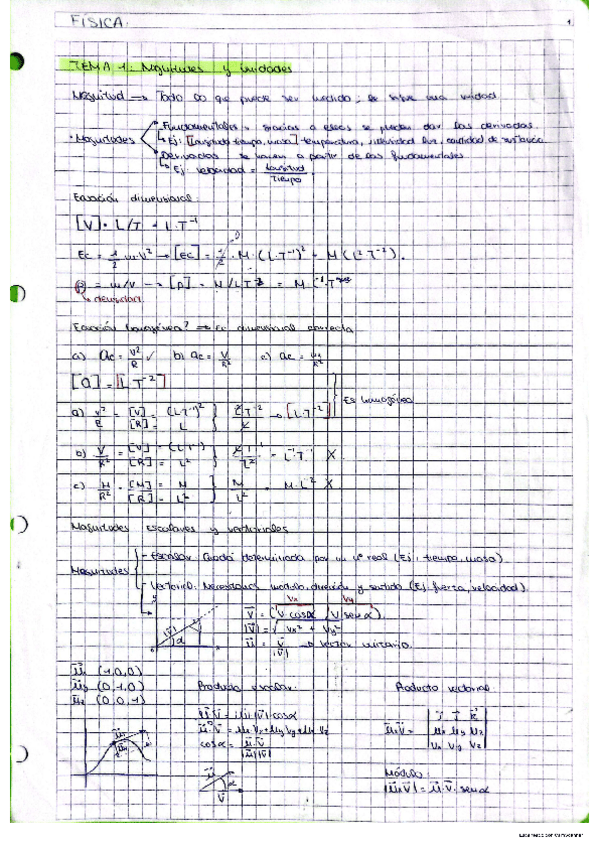 FÍSICA.
1
TEMA 1: Magnitudes y unidades
Magnitud → Todo lo que puede ser medido; se sigue una unidad
Fundamentales = gracias a ellas se pueden dar las derivadas.
· Magnitudes
Ej: [Longitud, tiempo, masa] temperatura, intensidad luz, cantidad de sustancia
Derivadas se sacan a partir de las fundamentales
Ej: velocidad = Longitud / Tiempo
Ecuación dimensional:
[V] = L/T = L·T⁻¹
Ec = 1/2 m·V² → [Ec] = 1/2 · M·(L·T⁻¹)² = M(L²T⁻²).
= m/V → [ρ] =
densidad
Ecuación homogénea? → Ec dimensional correcta
a) ac = V²/R ✓ b) ac = V/R² c) ac = M/R²
[a] = [L T⁻²]
Es homogénea
a) V²/R = [V] = (L·T⁻¹)² / [R] = L } → [L·T⁻²]
b) V/R² = [V] = (L·T⁻¹) / [R] = L² } = L⁻¹T⁻¹ X
c) M/R² = [M] = M / [R] = L² } M/L² = M·L⁻² X
Magnitudes escalares y vectoriales
Magnitudes
- Escalar: Queda determinada por un nº real (Ej: tiempo, masa)
- Vectorial: Necesitamos módulo, dirección y sentido (Ej. fuerza, velocidad).
Vx Vy
V = (V·cosα, V·senα)
|V| = √Vx² + Vy²
u = V/|V| → Vector unitario.
(1,0,0)
(0,1,0)
(0,0,1)
Producto escalar:
Producto vectorial
u·V = |u||V|·cosα
u·V = ux Vx + uy Vy + uz Vz
cosα = u·V / |u||V|
i j k
ux uy uz
Vx Vy Vz
Módulo:
|u×V| = u·V·senα